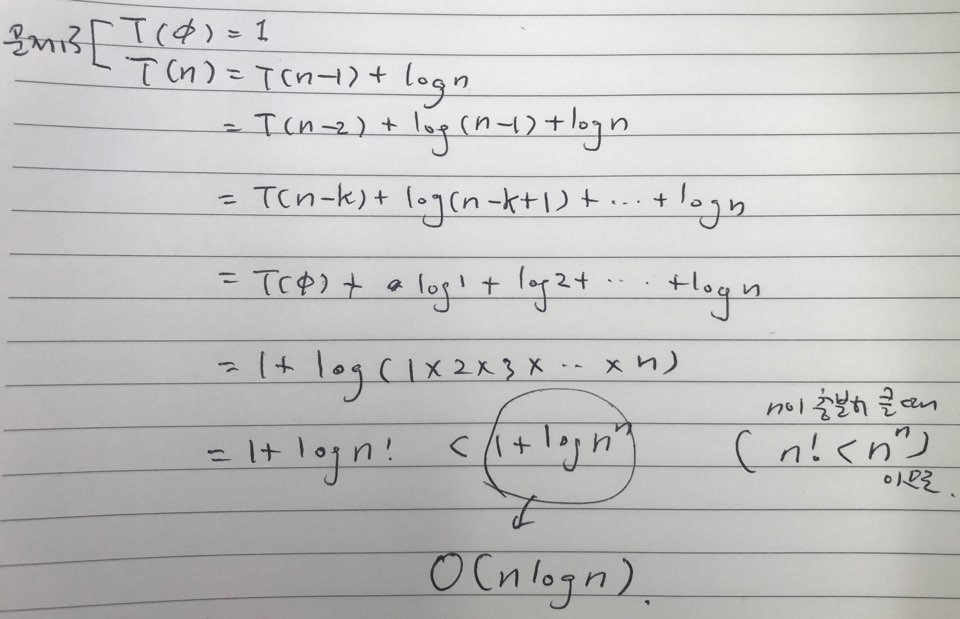 문제13 [ T(ϕ) = 1
T(n) = T(n-1) + log n
= T(n-2) + log(n-1) + log n
= T(n-k) + log(n-k+1) + ... + log n
= T(ϕ) + log1 + log2 + ... + log n
= 1 + log(1×2×3×...×n)
= 1 + log n! < 1 + log nⁿ (n이 충분히 클 때 n! < nⁿ) 이므로.
O(n log n).